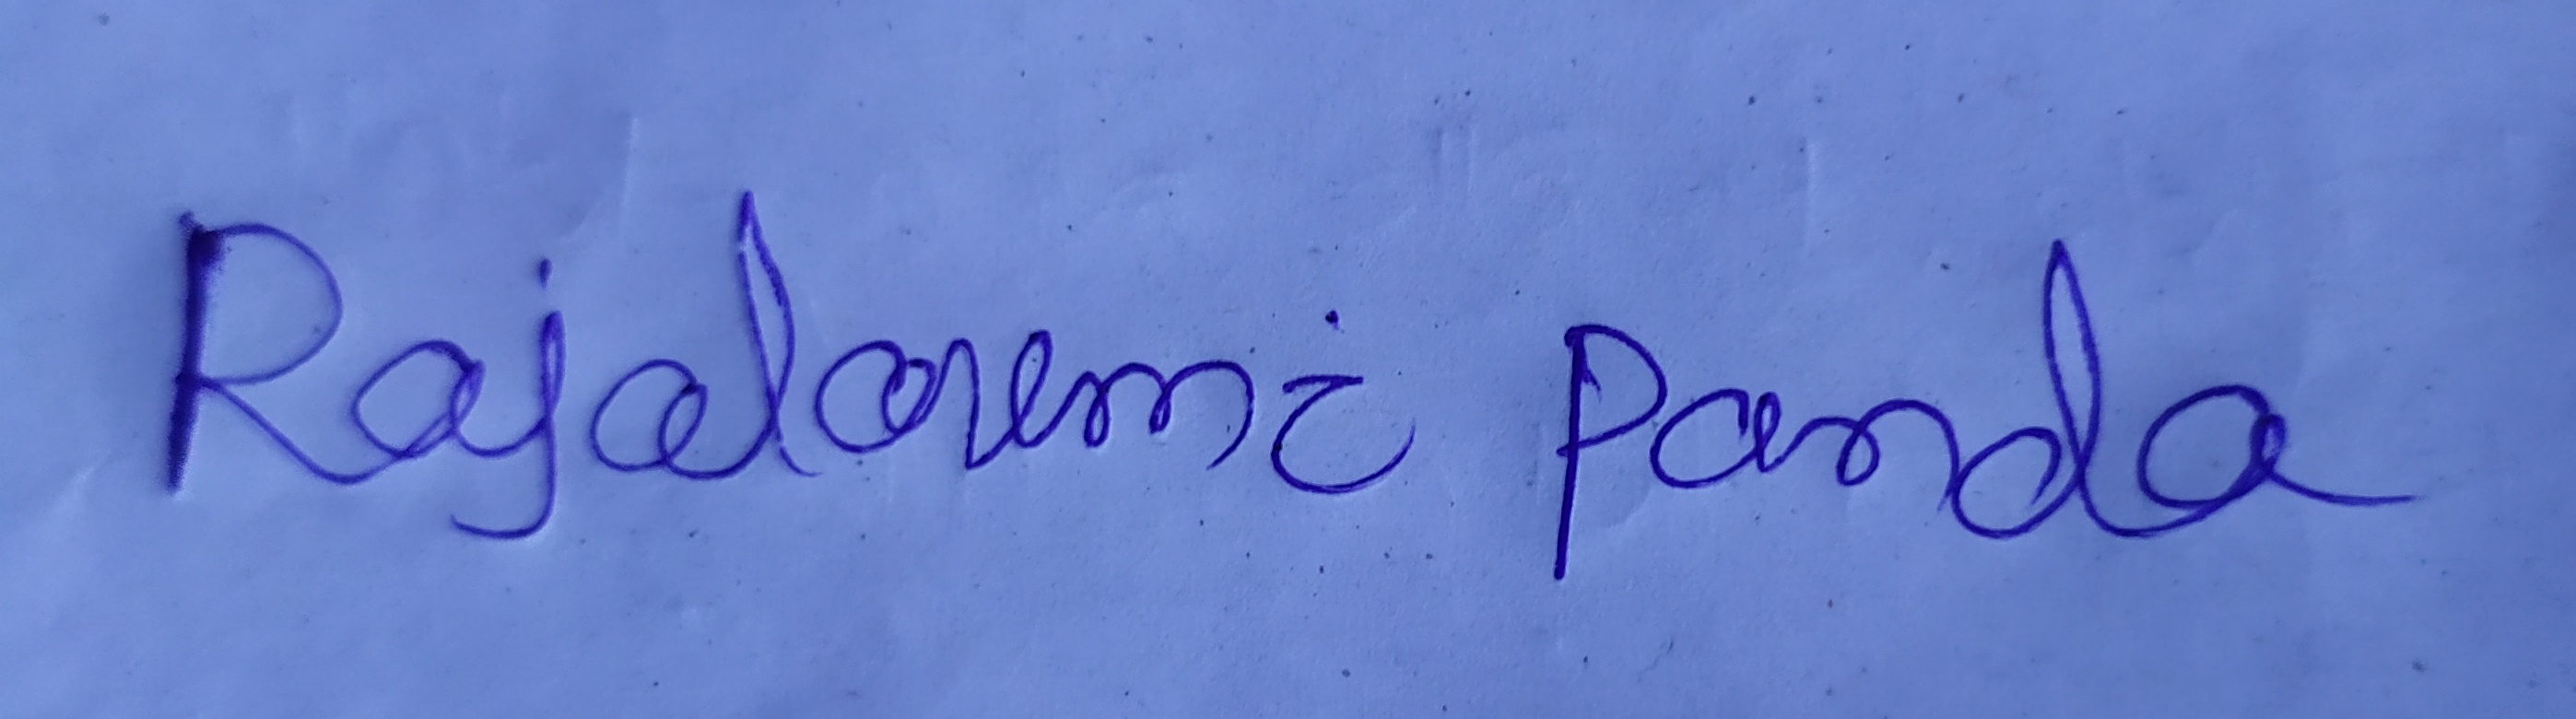 Rajalaxmi Panda